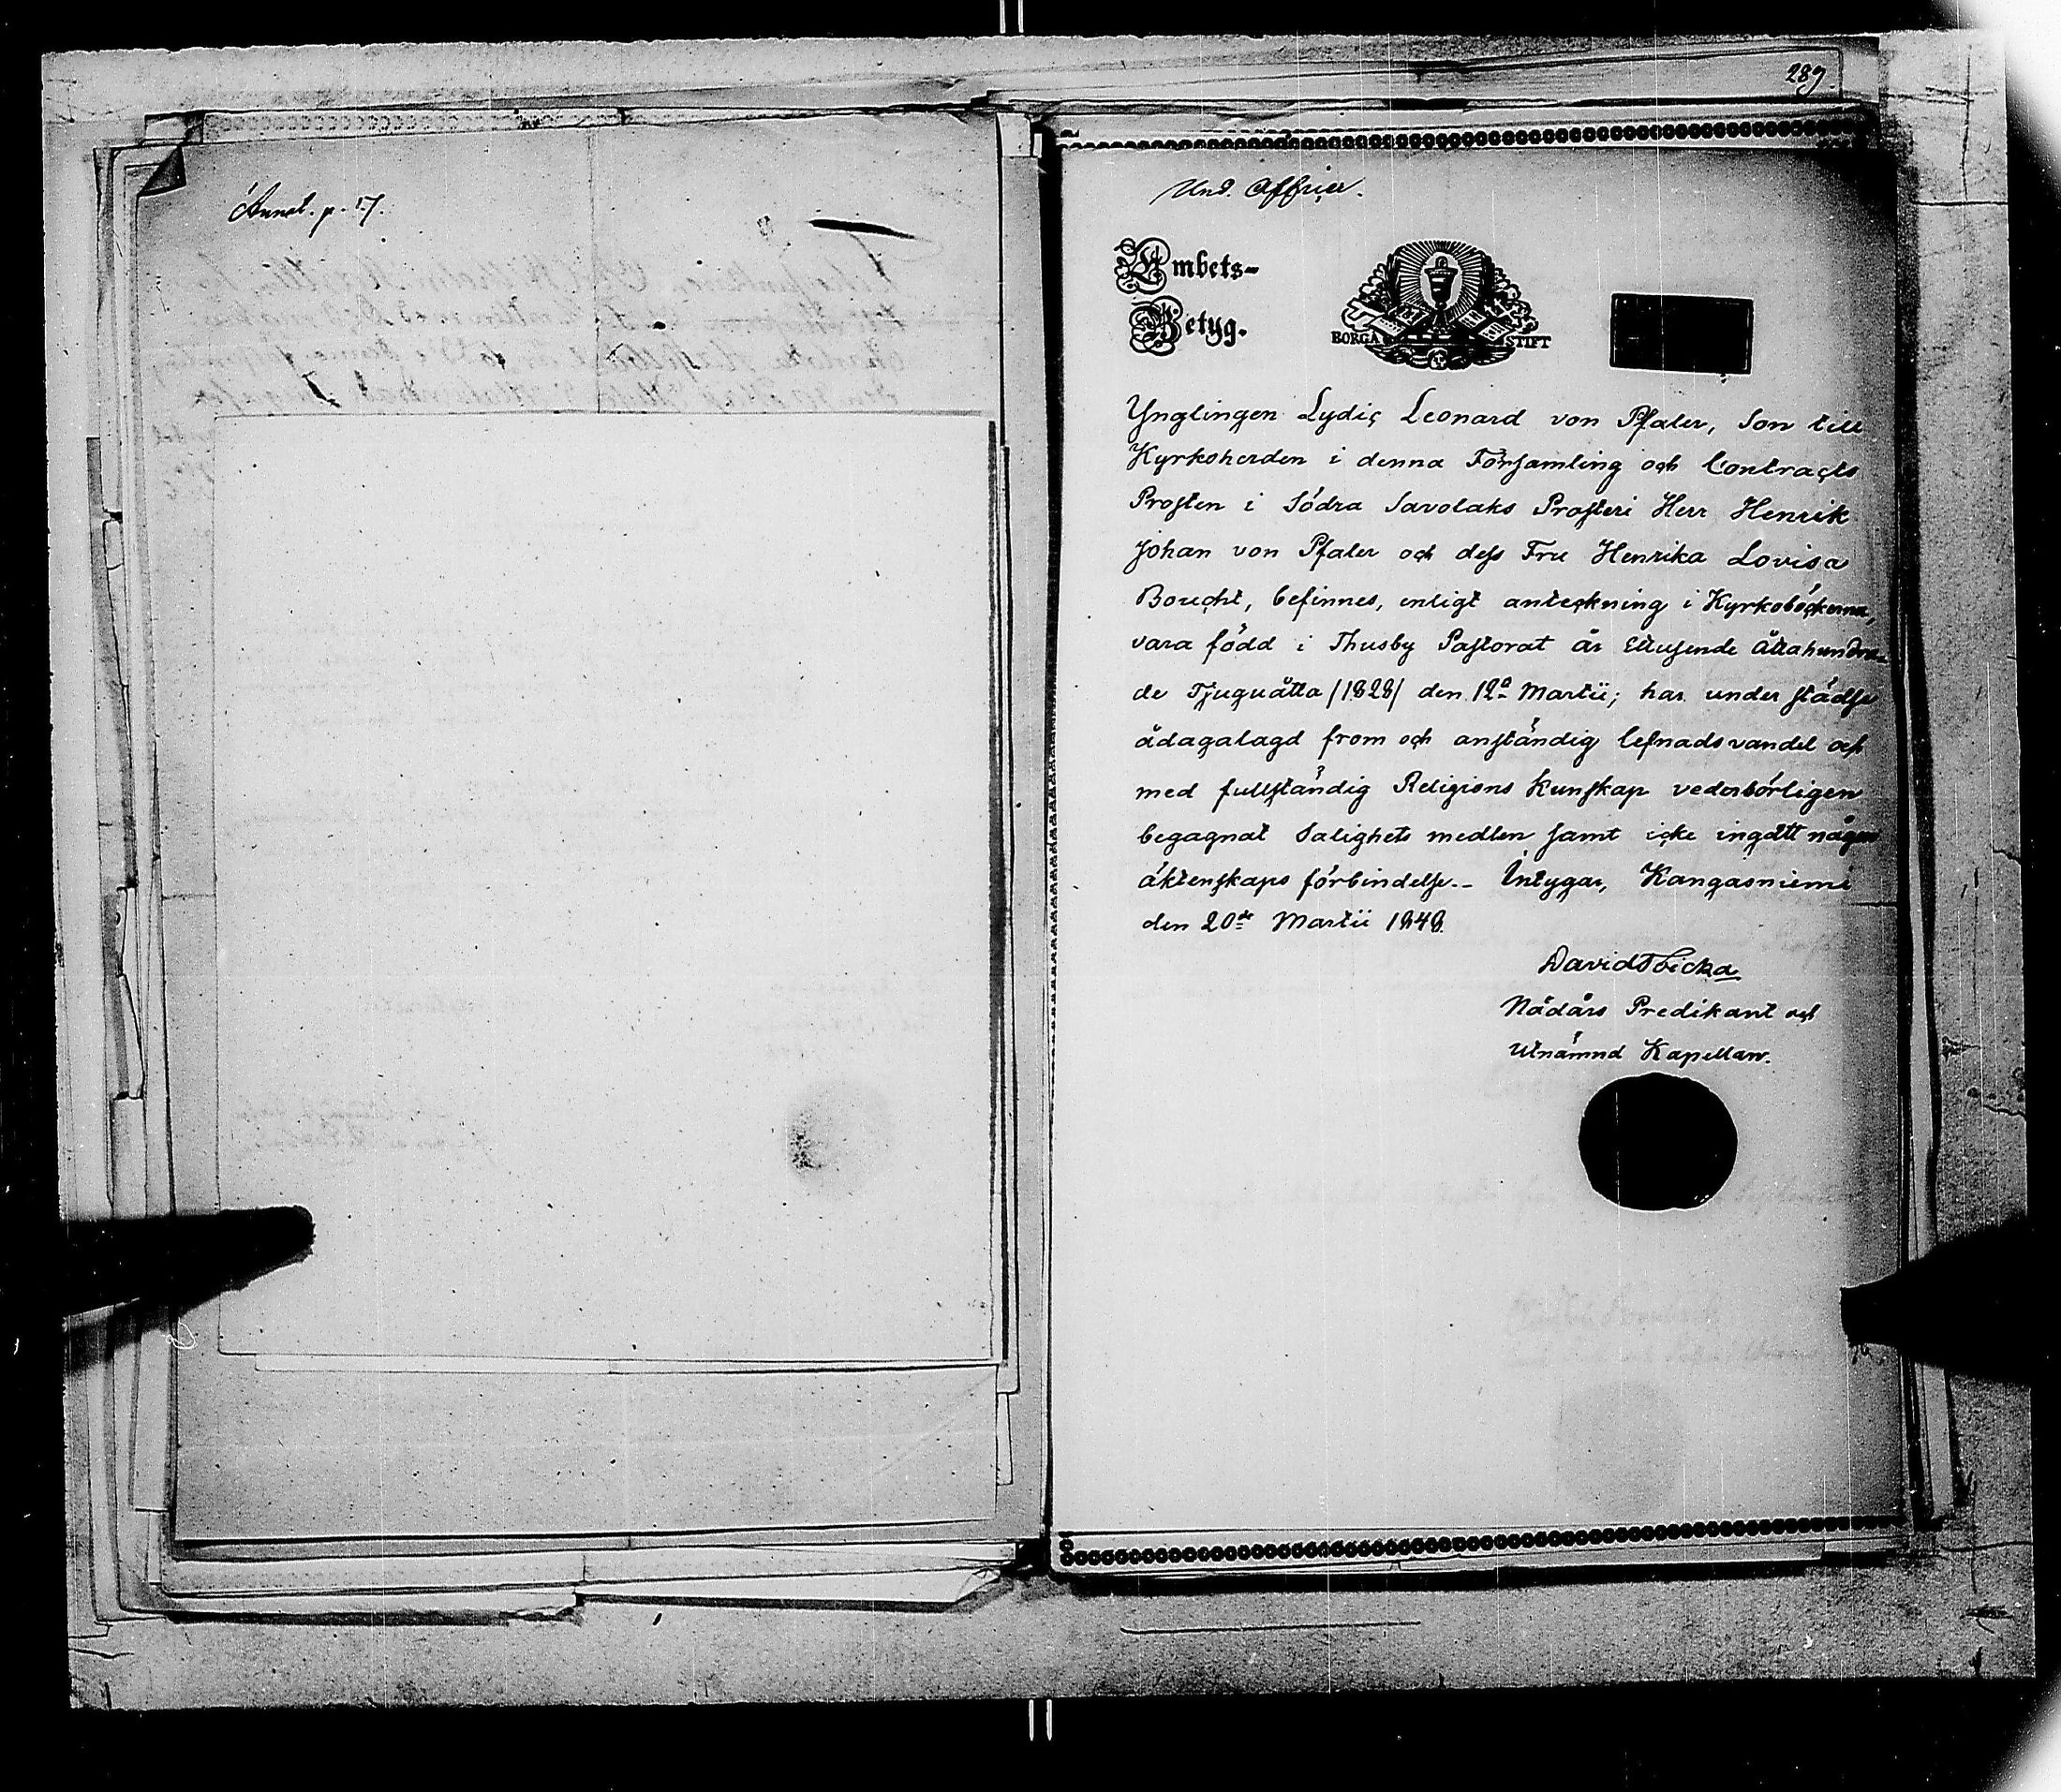 Annot. p. 17.
289.
Und. Officier.
Embets-
Betyg.
BORGÅ STIFT
Ynglingen Lydic Leonard von Pfaler, Son till
Kyrkoherden i denna Församling och Contracts
Prosten i Södra Savolaks Prosteri Herr Henrik
Johan von Pfaler och dess Fru Henrika Lovisa
Borcht, befinnes, enligt anteckning i Kyrkoböckerna,
vara född i Thusby Pastorat år Ettusende Åttahundra-
de Tjuguåtta /1828/ den 12a Martii; har under städse
ådagalagd from och anständig lefnadsvandel och
med fullständig Religions Kunskap vederbörligen
begagnat Salighets medlen samt icke ingått någon
äktenskaps förbindelse.- Intygar, Kangasniemi
den 20de Martii 1848.
David
Nådårs Predikant och
Utnämnd Kapellan.